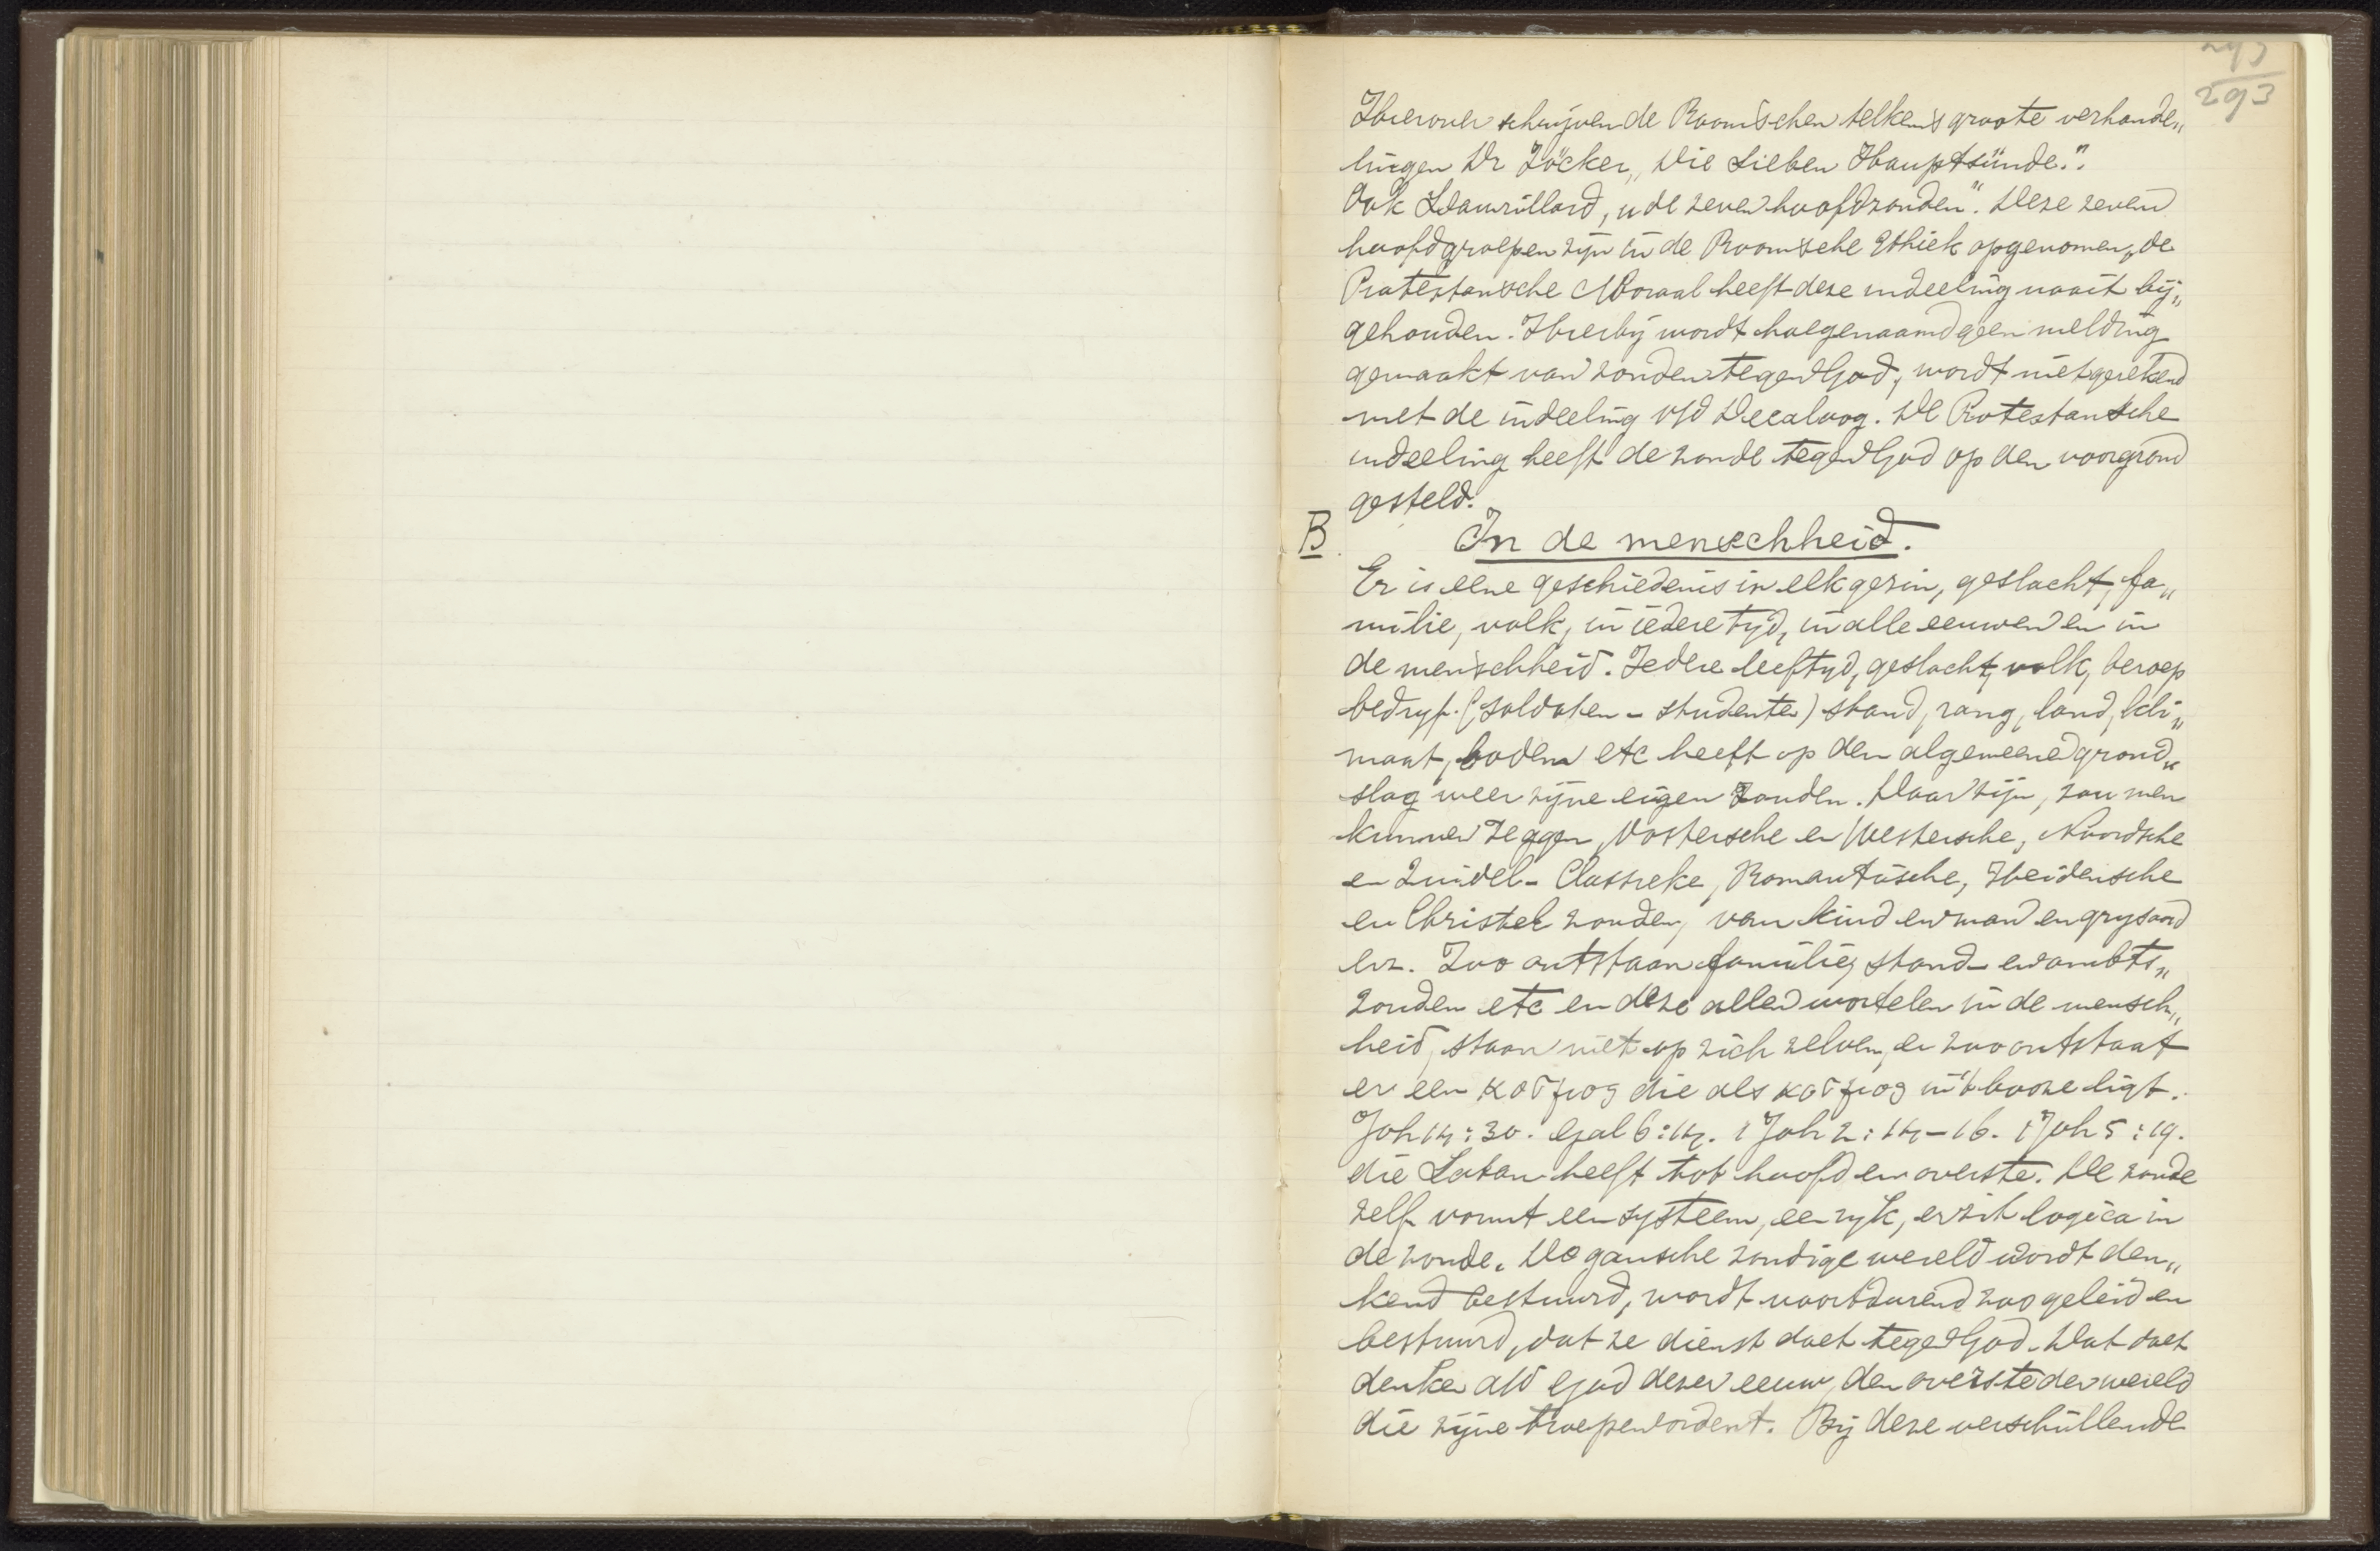 293
293
Hierover schrijven de Roomschen telkens groote verhande„
lingen Dr Zöcker „Die Sieben Hauptsünde."
Ook Laurillard, „de zeven hoofdzonden". Deze zeven
hoofdgroepen zijn in de Roomsche Ethiek opgenomen, de
Protestansche Moraal heeft deze indeeling nooit bij„
gehouden. Hierbij wordt hoegenaamd geen melding
gemaakt van zonden tegen God, wordt niet gerekend
met de indeeling v/d Decaloog. De Protestansche
indeeling heeft de zonde tegen God op den voorgrond
gesteld.
B. In de menschheid.
Er is eene geschiedenis in elk gezin, geslacht, fa„
milie, volk, in iedere tijd, in alle eeuwen en in
de menschheid. Iedere leeftyd, geslacht, volk, beroep
bedryf. (soldaten - studenten) stand, rang, land, kli„
maat, bodem etc heeft op den algemeene grond„
slag weer zijne eigen zonden. Daar zijn, zou men
kunnen zeggen, Oostersche en Westersche, Noordsche
en Zuidel- Classieke, Romantische, Heidensche
en Christel zonden, van kind en man en grysaard
enz. Zoo ontstaan familie, stand- en ambts„
zonden etc en deze allen wortelen in de mensch„
heid, staan niet op zich zelven, en zoo ontstaat
er een κοσμος die als κοσμος in 't booze ligt.
Joh 14:30. Gal 6:14. 1 Joh 2:14-16. 1 Joh 5:19.
die Satan heeft tot hoofd en overste. De zonde
zelf vormt een systeem, een ryk, er zit logica in
de zonde. De gansche zondige wereld wordt den„
kend bestuurd, wordt voortdurend zoo geleid en
bestuurd, dat ze dienst doet tegen God. Dat doet
denken a/d God dezer eeuw, den overste der wereld
die zijne troepen ordent. Bij deze verschillende